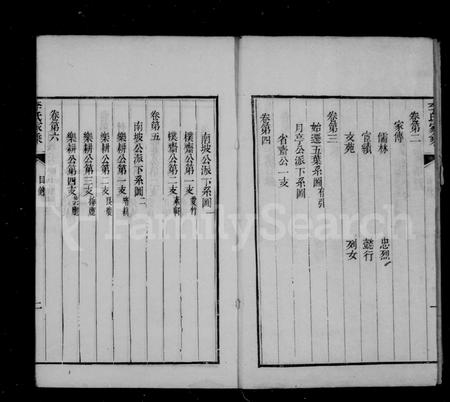 卷第二
家傳
儒林 忠烈
宦績 懿行
文苑 列女
卷第三
始遷五葉系圖
月立公派下系圖
省齋公一支
卷第四
南坡公派下系圖一
樸齋公第一支
樸齋公第二支
卷第五
南坡公派下系圖二
樂耕公第一支
樂耕公第二支
樂耕公第三支
樂耕公第四支
卷第六
李氏家乘 目錄 二
FamilySearch